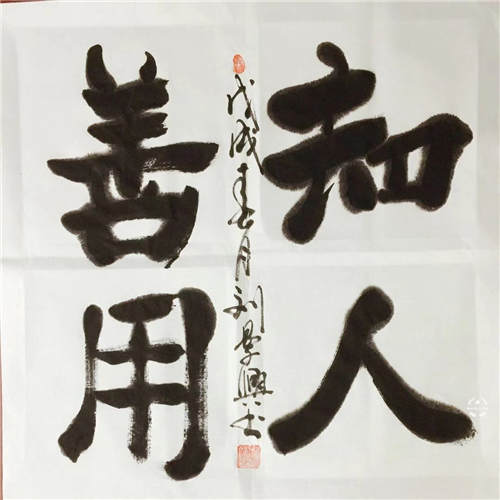 知人
善用
戊戌年春月刘景兴书